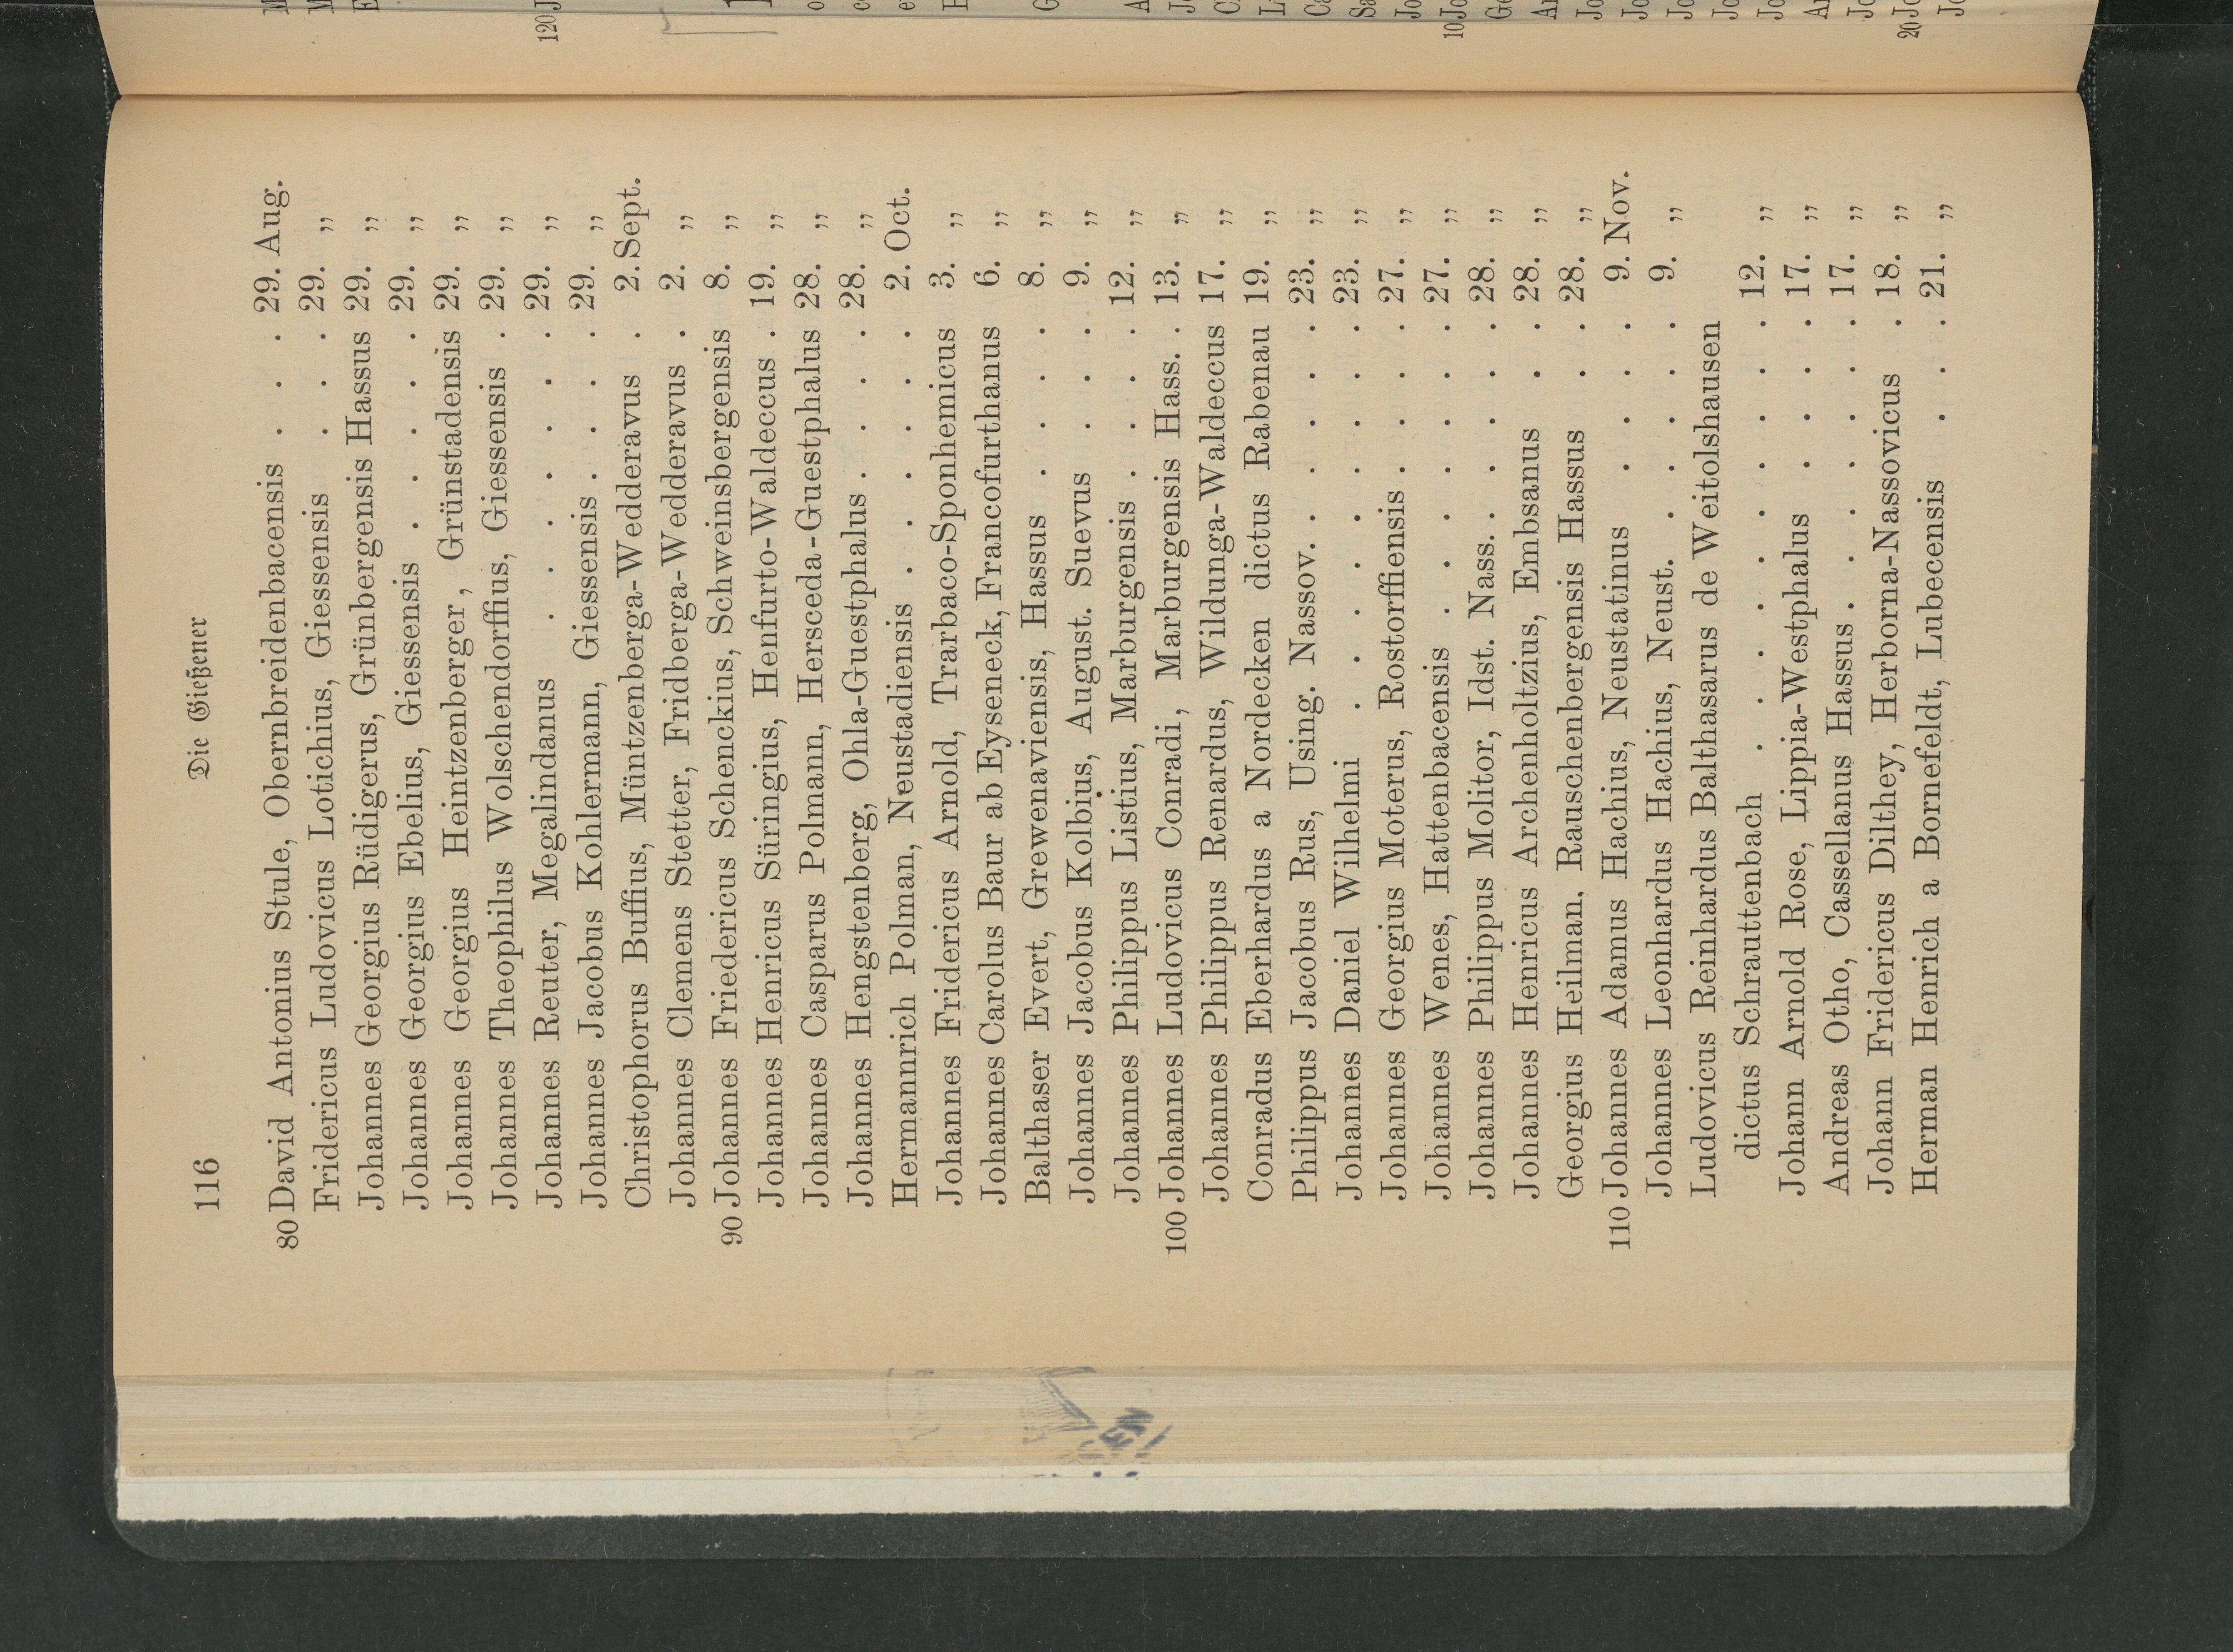 116
Die Gießener
80 David Antonius Stule, Obernbreidenbacensis . . . 29. Aug.
Fridericus Ludovicus Lotichius, Giessensis . . . 29. „
Johannes Georgius Rüdigerus, Grünbergensis Hassus 29. „
Johannes Georgius Ebelius, Giessensis . . . . . 29. „
Johannes Georgius Heintzenberger, Grünstadensis 29. „
Johannes Theophilus Wolschendorffius, Giessensis . 29. „
Johannes Reuter, Megalindanus . . . . . . . 29. „
Johannes Jacobus Kohlermann, Giessensis . . . . 29. „
Christophorus Buffius, Müntzenberga-Wedderavus . 2. Sept.
Johannes Clemens Stetter, Fridberga-Wedderavus . 2. „
90 Johannes Friedericus Schenckius, Schweinsbergensis 8. „
Johannes Henricus Süringius, Henfurto-Waldeccus . 19. „
Johannes Casparus Polmann, Hersceda-Guestphalus 28. „
Johannes Hengstenberg, Ohla-Guestphalus . . . . 28. „
Hermannrich Polman, Neustadiensis . . . . . . 2. Oct.
Johannes Fridericus Arnold, Trarbaco-Sponhemicus 3. „
Johannes Carolus Baur ab Eyseneck, Francofurthanus 6. „
Balthaser Evert, Grewenaviensis, Hassus . . . . 8. „
Johannes Jacobus Kolbius, August. Suevus . . . 9. „
Johannes Philippus Listius, Marburgensis . . . . 12. „
100 Johannes Ludovicus Conradi, Marburgensis Hass. . 13. „
Johannes Philippus Renardus, Wildunga-Waldeccus 17. „
Conradus Eberhardus a Nordecken dictus Rabenau 19. „
Philippus Jacobus Rus, Using. Nassov. . . . . . 23. „
Johannes Daniel Wilhelmi . . . . . . . . . 23. „
Johannes Georgius Moterus, Rostorffiensis . . . . 27. „
Johannes Wenes, Hattenbacensis . . . . . . . 27. „
Johannes Philippus Molitor, Idst. Nass. . . . . . 28. „
Johannes Henricus Archenholtzius, Embsanus . . 28. „
Georgius Heilman, Rauschenbergensis Hassus . . 28. „
110 Johannes Adamus Hachius, Neustatinus . . . . 9. Nov.
Johannes Leonhardus Hachius, Neust. . . . . . 9. „
Ludovicus Reinhardus Balthasarus de Weitolshausen
dictus Schrauttenbach . . . . . . . . . . 12. „
Johann Arnold Rose, Lippia-Westphalus . . . . 17. „
Andreas Otho, Cassellanus Hassus . . . . . . . 17. „
Johann Fridericus Dilthey, Herborna-Nassovicus . 18. „
Herman Henrich a Bornefeldt, Lubecensis . . . 21. „
120
10
20